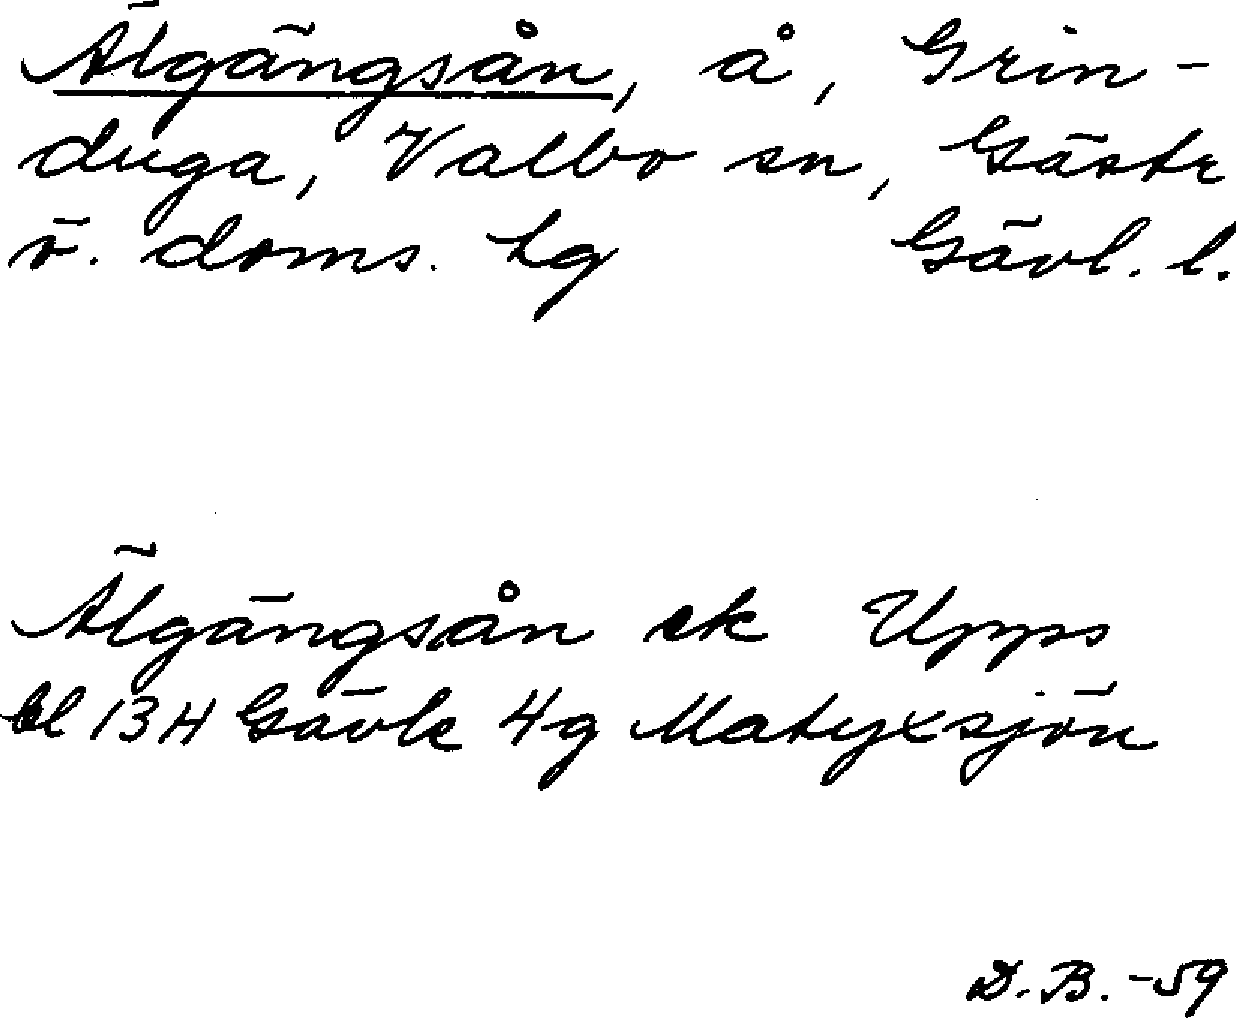 Älgängsån, å, Grin-
duga, Valbo sn, Gästr
ö. doms. hg Gävl. l.
Älgängsån ek Upps
bl 13H Gävle 4g Matyxsjön
D.B. -59